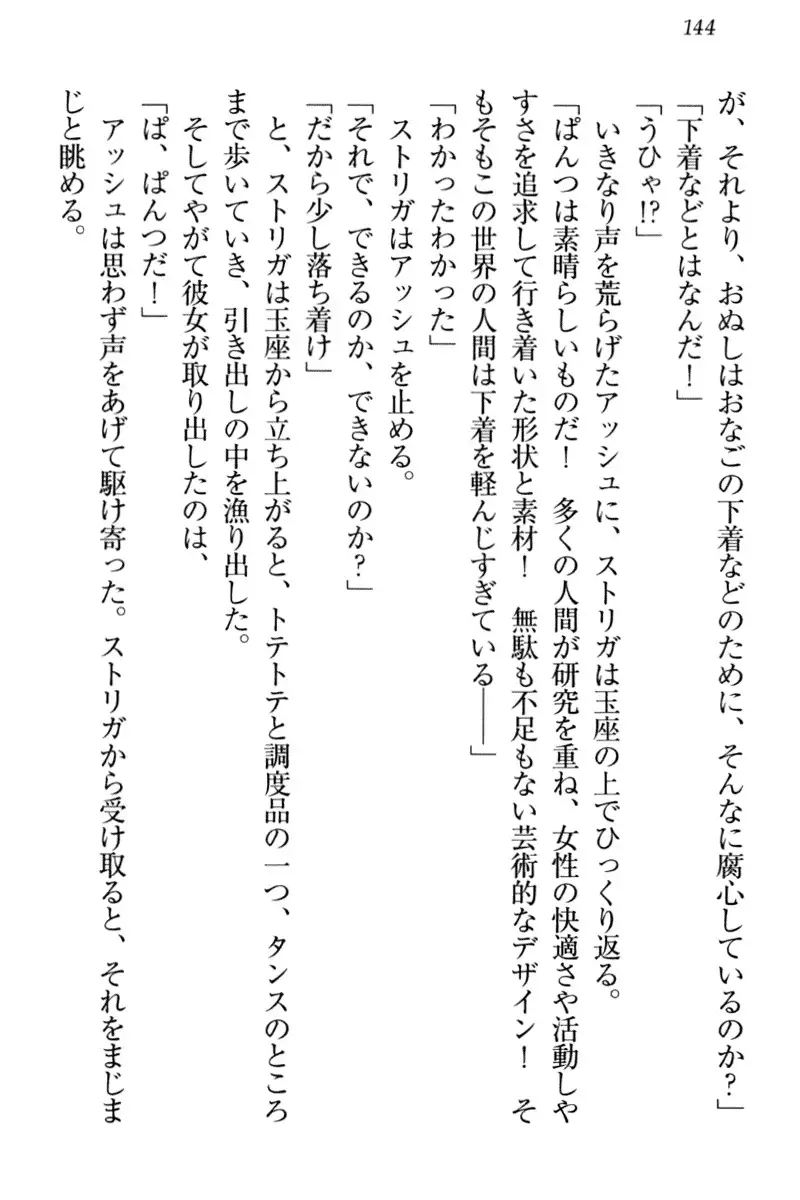 144
が、それより、おぬしはおなごの下着などのために、そんなに腐心しているのか？」
「下着などとはなんだ！」
「うひゃ!?」
いきなり声を荒らげたアッシュに、ストリガは玉座の上でひっくり返る。
「ぱんつは素晴らしいものだ！　多くの人間が研究を重ね、女性の快適さや活動しや
すさを追求して行き着いた形状と素材！　無駄も不足もない芸術的なデザイン！　そ
もそもこの世界の人間は下着を軽んじすぎている――」
「わかったわかった」
ストリガはアッシュを止める。
「それで、できるのか、できないのか？」
「だから少し落ち着け」
と、ストリガは玉座から立ち上がると、トテトテと調度品の一つ、タンスのところ
まで歩いていき、引き出しの中を漁り出した。
そしてやがて彼女が取り出したのは、
「ぱ、ぱんつだ！」
アッシュは思わず声をあげて駆け寄った。ストリガから受け取ると、それをまじま
じと眺める。